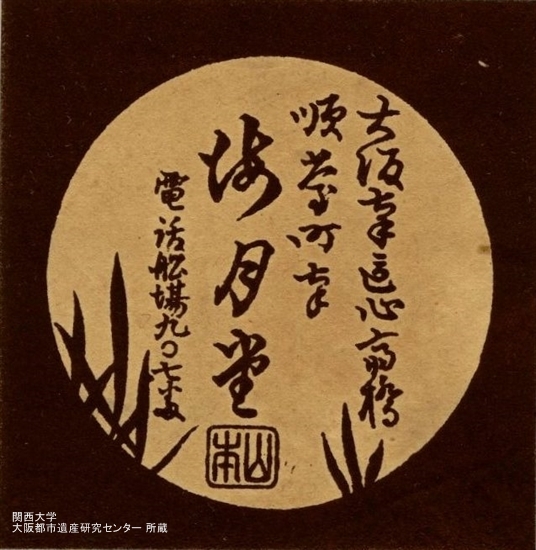 大阪東区心斎橋
順慶町東
梅月堂
電話船場九〇七番
山本
関西大学
大阪都市遺産研究センター 所蔵